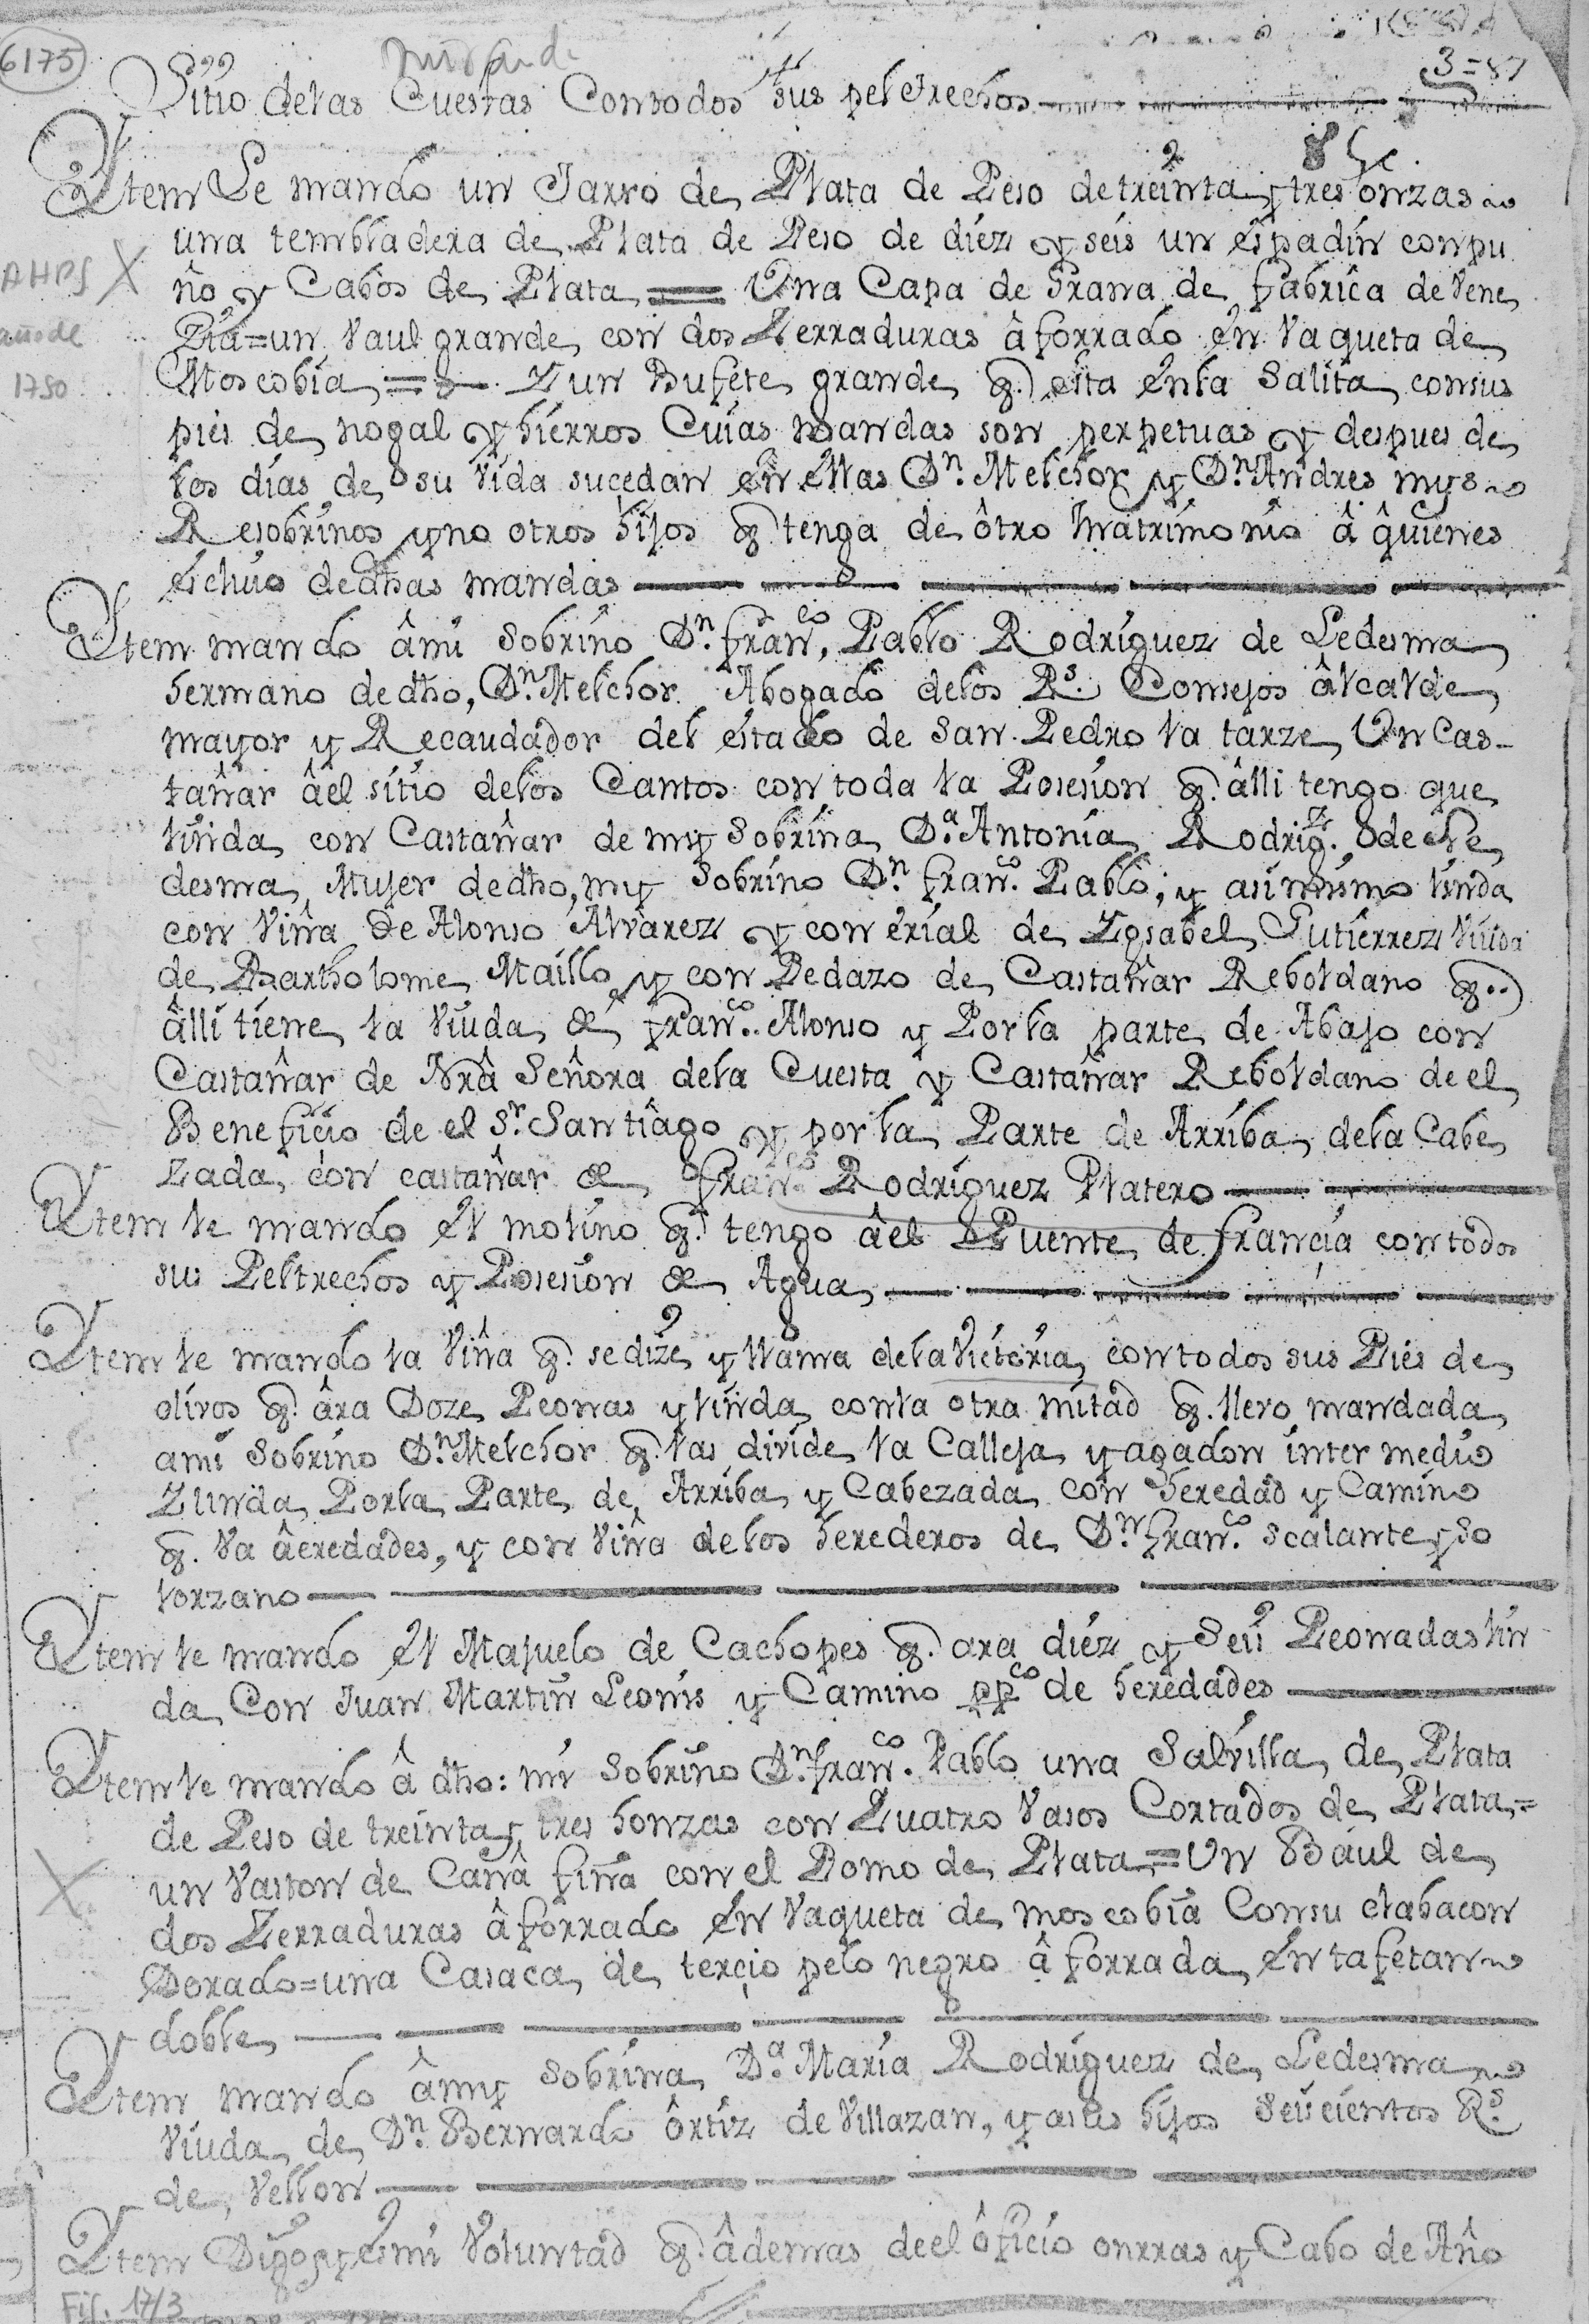 6175
3=87
Sitio delas Cuestas Con todos sus peltrechos
Ytem Le mando un Jarro de Plata de Peso de treinta y tres onzas
una tembladera de Plata de Peso de diéz y seis un espadin con pu
ño y Cabos de Plata = Una Capa de Grana de fabrica de Vene
Zia = un Vaul grande con dos Zerraduras âforrado en Vaqueta de
AHPS
año de
1780
Moscobia = Y un Bufete grande q. esta enla Salita con sus
pies de nogal y hierros Cuias mandas son perpetuas y despues de
los dias de su Vida sucedan en ellas Dn. Melchor y Dn. Andres mys
Resobrinos y no otros hijos q. tenga de ôtro Matrimonio â quienes
escluio de dhas mandas
Ytem mando âmi Sobrino Dn. franco. Pablo Rodriguez de Ledesma
hermano de dho, Dn. Melchor Abogado delos Rs. Consejos âlcalde
mayor y Recaudador del estado de San Pedro la tarze Un Cas-
tañar âel sitio delos Cantos con toda la Posesion q. âlli tengo que
linda con Castañar de my Sobrina Da. Antonia Rodrigz. de Le
desma Mujer de dho, my Sobrino Dn. franco. Pablo; y asimismo linda
con Viña de Alonso Alvarez y con erial de Ygsabel Gutierrez Viuda
de Bartholome Maillo y con Pedazo de Castañar Reboldano q.
âlli tiene la Viuda de franco. Alonso y Por la parte de Abajo con
Castañar de Nra Señora dela Cuesta y Castañar Reboldano de el
Beneficio de el Sr. Santiâgo y por la Parte de Arriba dela Cabe
zada con castañar de franco. Rodriguez Platero
Ytem le mando el molino q. tengo âel Puente de francia con todos
sus Peltrechos y Posesion de Agua
Ytem le mando la Viña q. se dize y llama dela Victoria con todos sus Pies de
olivos q. âra Doze Peonas y linda conla otra mitad q. llevo mandada
ami Sobrino Dn. Melchor q. las divide la Calleja y agadon inter medio
Y linda Porla Parte de Arriba y Cabezada con heredad y Camino
q. Va âeredades, y con Viña delos herederos de Dn. franco. Scalante y So
lorzano
Ytem le mando el Majuelo de Cachopes q. ara diéz y Seis Peonadas lin
da Con Juan Martin Leonis y Camino ppco de heredades
Ytem le mando â dho: mi Sobrino Dn. franco. Pablo una Salvilla de Plata
de Peso de treinta y tres honzas con Quatro Vasos Cortados de Plata =
un Vaston de Caña fina con el Pomo de Plata = Un Bául de
dos Zerraduras âforrado en Vaqueta de moscobia Con su clabacon
Dorado = una Casaca de terçio pelo negro âforrada en tafetan
doble
Ytem mando âmy Sobrina Da. Maria Rodriguez de Ledesma
Viuda de Dn. Bernardo ôrtiz de Villazan, y asus hijos Seiscientos Rs.
de Vellon
Ytem Digo y es mi Voluntad q. âdemas deel ôficio onrras y Cabo de Año
Fil. 17/3